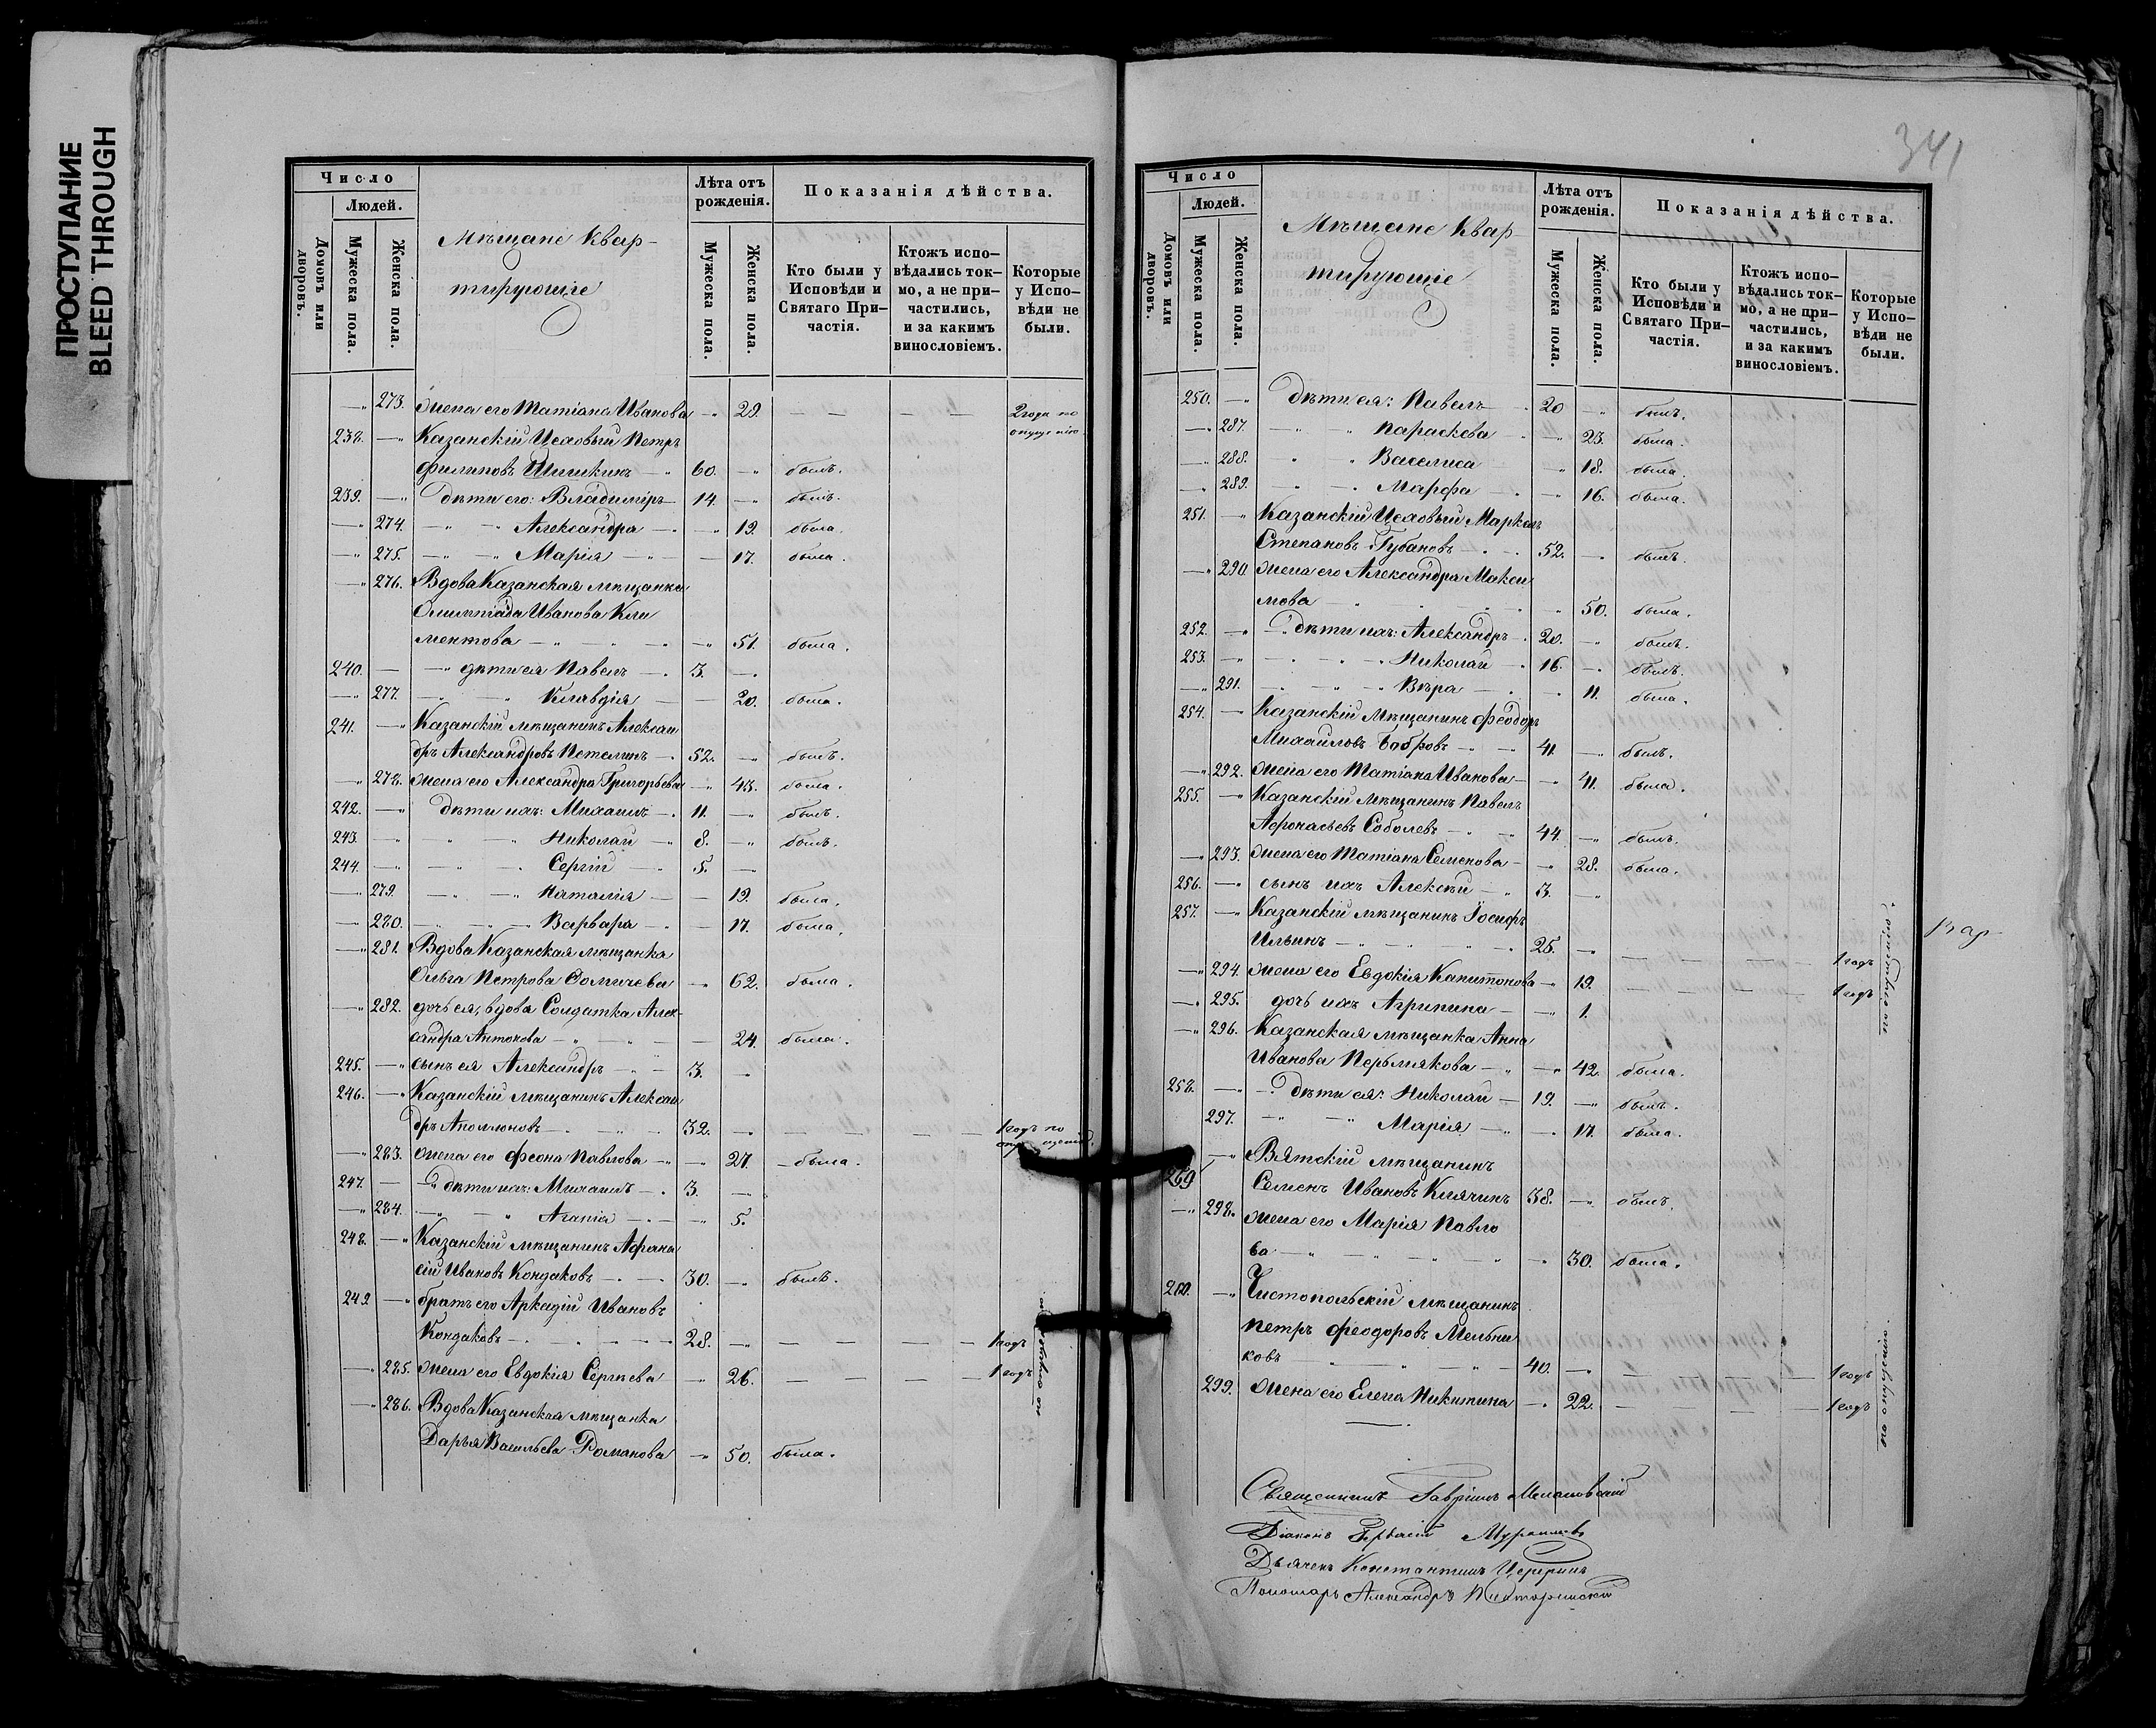 ПРОСТУПАНИЕ
BLEED THROUGH
Число
Людей.
Домовъ или дворовъ.
Мужеска пола.
Женска пола.
Мѣщане Квар-
тирующіе
Лѣта отъ рожденія.
Мужеска пола.
Женска пола.
Показанія дѣйства.
Кто были у Исповѣди и Святаго При-частія.
Ктожъ испо-вѣдались ток-мо, а не при-частились, и за какимъ винословіемъ.
Которые у Испо-вѣди не были.
—„ 273. Жена его Татіана Иванова —„ 29. — — — — 2 года по
опущенію
238. —„ Казанскій Цеховый Петръ
Филиповъ Шишкинъ — 60. —„ былъ.
239. —„ Дѣти его: Владиміръ 14. —„ былъ.
—„ 274. —„ —„ Александра — —„ 19. была.
—„ 275. —„ —„ Марія — — 17. была.
—„ 276. Вдова Казанская мѣщанка
Олимпіада Иванова Кли
ментова —„ — — —„ 51. была.
240. — —„ дѣти ея Павелъ —. 3. —„
—„ 277. —„ —„ Клавдія — — 20. была.
241. —„ Казанскій мѣщанинъ Алексан
дръ Александровъ Петелинъ —. 52. —„ былъ.
—„ 278. Жена его Александра Григорьева —„ 43. была.
242. —„ Дѣти ихъ: Михаилъ —. 11. —„ былъ.
243. —„ —„ —„ Николай —„ 8. —„ былъ.
244. —„ —„ —„ Сергій —„ 5. —
—„ 279. —„ —„ Наталія — — 19. была.
—„ 280. —„ —„ Варвара — — 17. была.
—„ 281. Вдова Казанская мѣщанка
Ольга Петрова Сомичева —„ 62. была.
—„ 282. дочь ея, вдова Солдатка Алек-
сандра Антонова —„ — — 24. была.
245. —„ сынъ ея Александръ —„ 3. —„
246. —„ Казанскій мѣщанинъ Алексан
дръ Аполлоновъ —. —. 32. —„ — — — 1 годъ по
—„ 283. Жена его Феона Павлова —„ —„ 27. — была.
247. — —„ дѣти ихъ: Михаилъ —. 3. —„
—„ 284. —„ —„ Агапія —. —„ 5.
248. —„ Казанскій мѣщанинъ Афана
сій Ивановъ Кондаковъ —. —. 30. —„ былъ.
249 —„ братъ его Аркадій Ивановъ
Кондаковъ —. — — 28. —„ — — — — 1 годъ
—„ 285. Жена его Евдокія Сергѣева —„ 26. — — — — 1 годъ
—„ 286. Вдова Казанская мѣщанка
Дарья Васильева Романова —„ 50. была.
341
Число
Людей.
Домовъ или дворовъ.
Мужеска пола.
Женска пола.
Мѣщане Квар
тирующіе
Лѣта отъ рожденія.
Мужеска пола.
Женска пола.
Показанія дѣйства.
Кто были у Исповѣди и Святаго При-частія.
Ктожъ испо-вѣдались ток-мо, а не при-частились, и за какимъ винословіемъ.
Которые у Испо-вѣди не были.
250. —„ Дѣти ея: Павелъ — 20 —„ былъ.
—„ 287. —„ —„ Параскева —„ —„ 23. была.
—„ 288. —„ —„ Васелиса —„ 18. была.
—„ 289. —„ —„ Марфа —. —„ 16. была.
251. —„ Казанскій Цеховый Маркелъ
Степановъ Губановъ —. —. 52. —„ былъ.
—„ 290 Жена его Александра Макси
мова —„ 50. была.
252. —„ —„ дѣти ихъ: Александръ —. 20. —„ былъ.
253. —„ —„ —„ Николай —„ 16. —„ былъ.
—„ 291. —„ —„ Вѣра —. —„ 11. была.
254. —„ Казанскій мѣщанинъ Феодоръ
Михаиловъ Бобровъ —„ — 41. —„ былъ.
—„ 292. Жена его Татіана Иванова —„ 41. была.
255. —„ Казанскій мѣщанинъ Павелъ
Афонасьевъ Соболевъ —„ — 44. —„ былъ.
—„ 293. Жена его Татіана Семенова —„ 28. была.
256. —„ сынъ ихъ Алексѣй —„ 3. —„
257. —„ Казанскій мѣщанинъ Іосифъ
Ильинъ —„ —„ 25. —„ — — — 1 годъ
—„ 294. Жена его Евдокія Капитонова —„ 19. — — — 1 годъ
по опущенію.
—„ 295. дочь ихъ Агрипина — —„ 1.
—„ 296. Казанская мѣщанка Анна
Иванова Пермякова —„ —„ 42. была.
258. —„ —„ дѣти ея: Николай — 19. —„ былъ.
297. —„ —„ Марія —„ —„ 17. была.
259 —„ Вятскій мѣщанинъ
Семенъ Ивановъ Клячинъ 38. —„ былъ.
—„ 298. Жена его Марія Павло
ва —„ —„ —„ 30. была.
260. —„ Чистопольскій мѣщанинъ
Петръ Феодоровъ Мельни
ковъ —„ —„ 40. —„ — — — 1 годъ
299. Жена его Елена Никитина —„ 22. — — — — 1 годъ
по опущенію.
Священникъ Гавріилъ
Діаконъ
Дьячекъ Константинъ
Пономарь Александръ